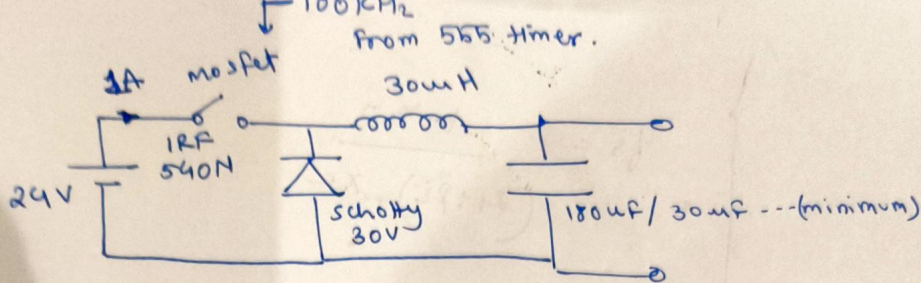 100KHz
From 555 timer.
1A mosfet
30uH
IRF
540N
24V
Schotty
30V
180uF/30uF ---(minimum)